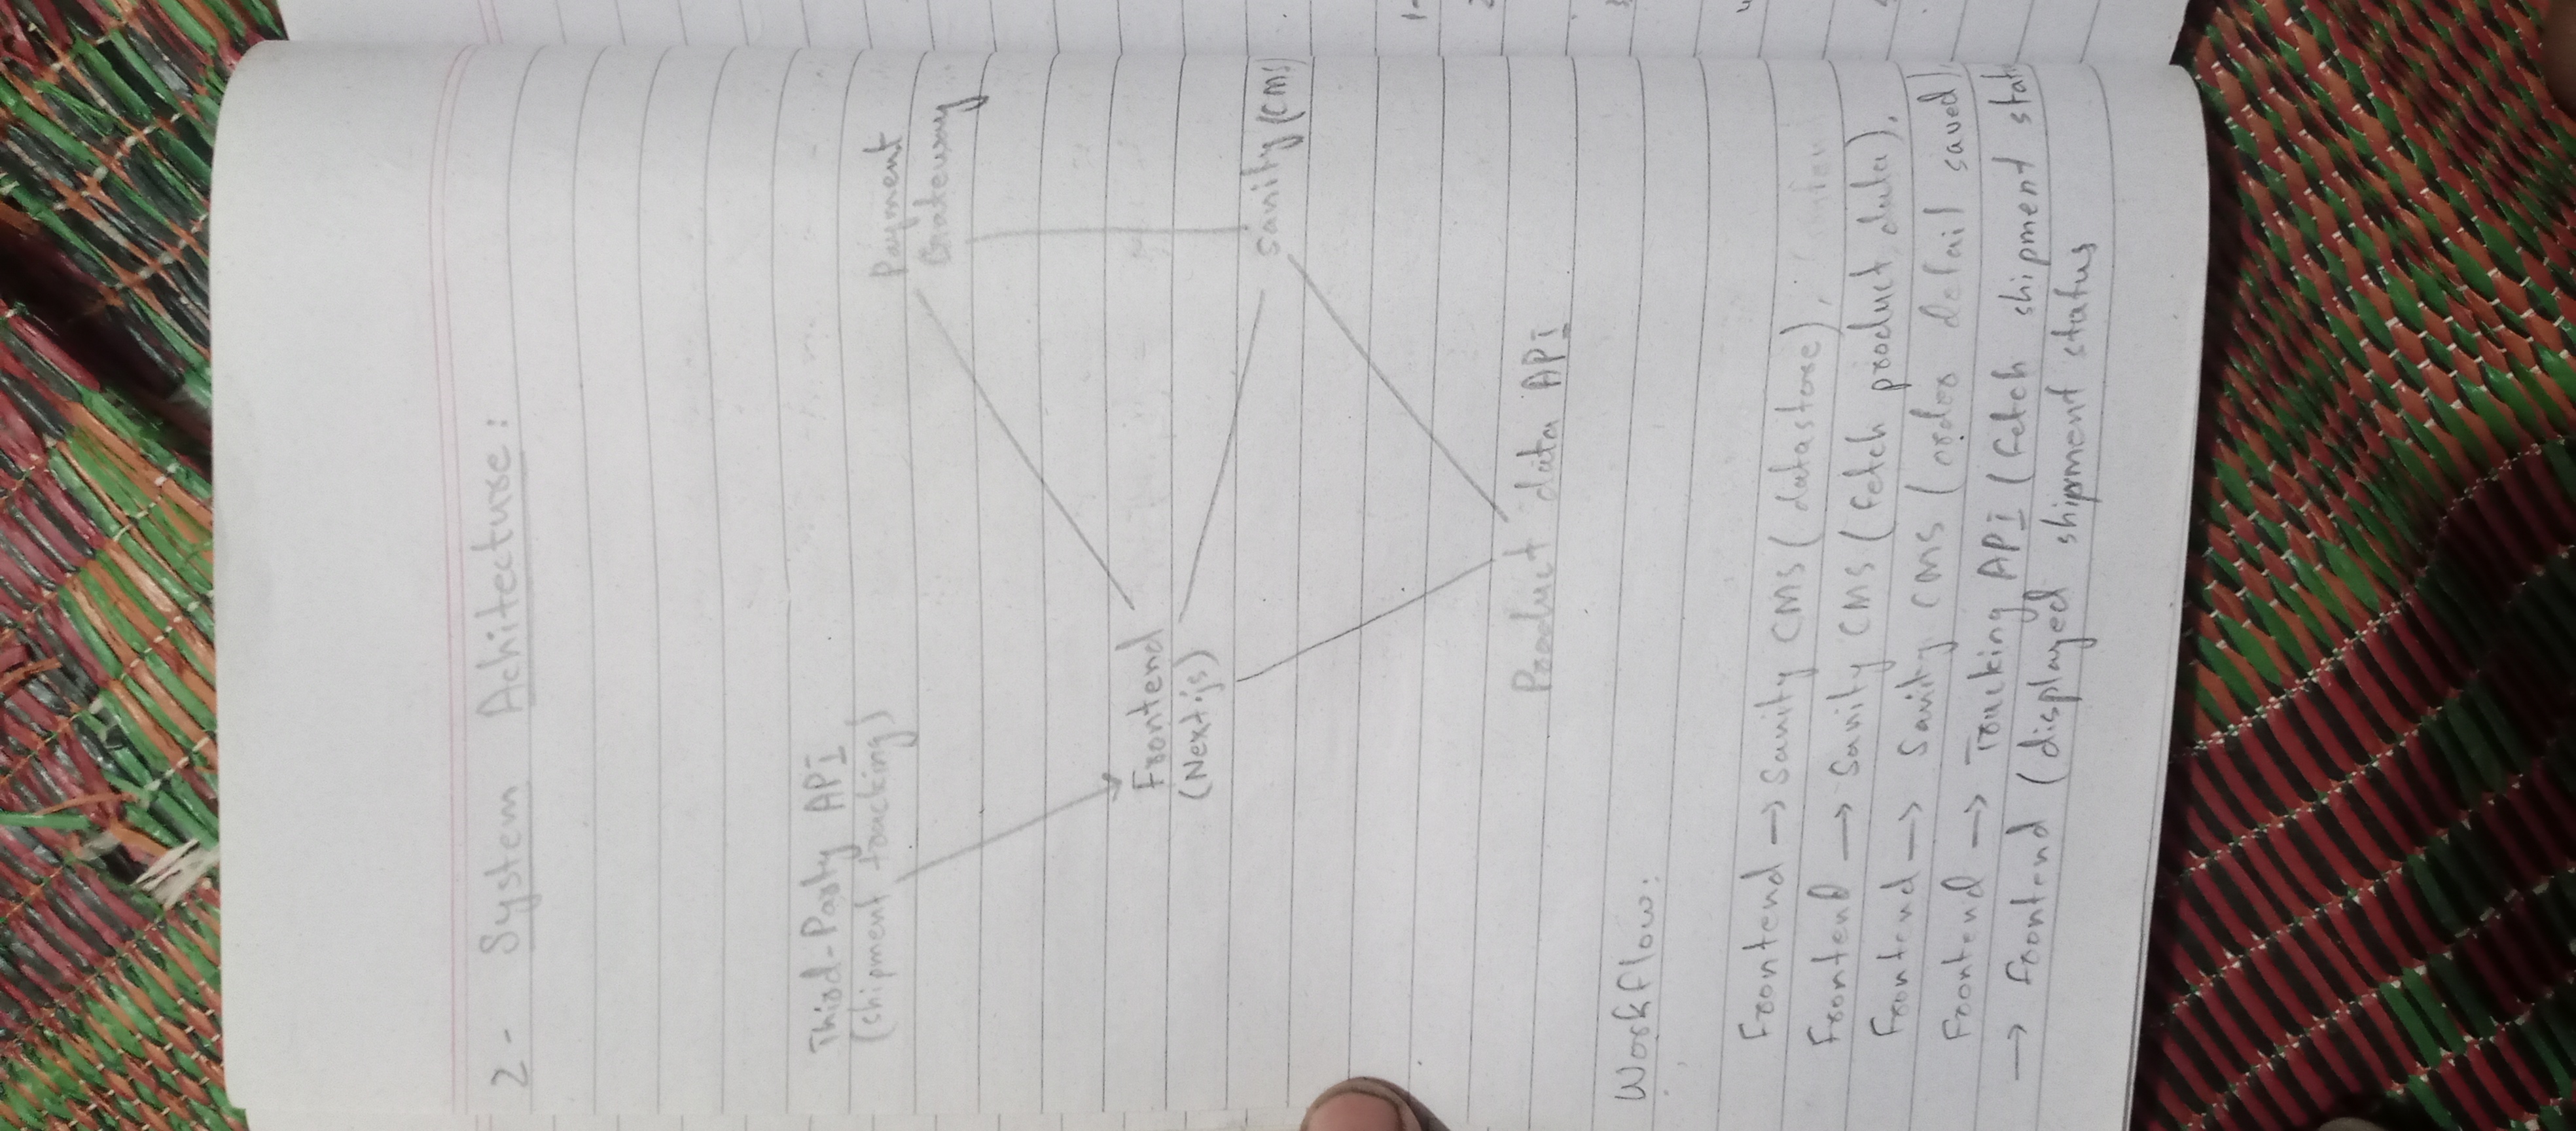 2- System Achitecture:
Third-Party API
(shipment tracking)
Payment
Gateway
Frontend
(Nextjs)
Sanity (CMS
Product data API
Workflow:
Frontend → Sanity CMS (datastore),
Frontend → Sanity CMS (Fetch product data),
Frontend → Sanity CMS (order detail saved)
Frontend → Tracking API (Fetch shipment
→ frontend (displayed shipment status